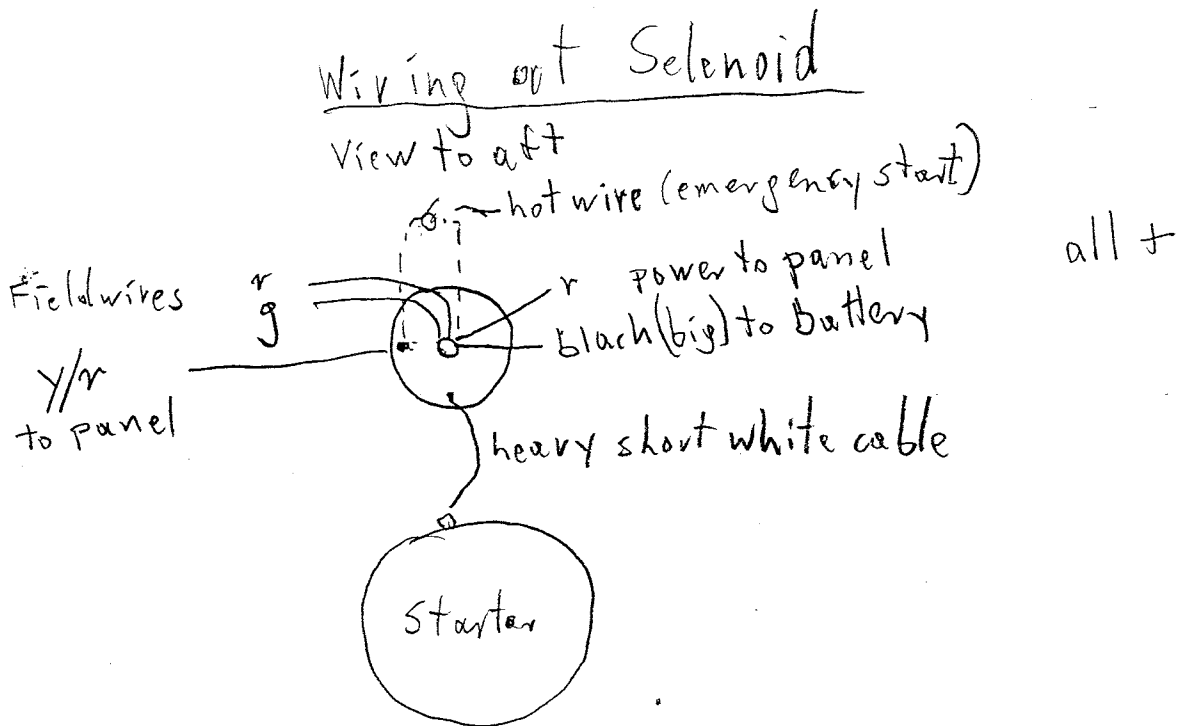 Wiring at Selenoid
View to aft
hot wire (emergency start)
all +
Fieldwires
r
g
r power to panel
blach (big) to battery
y/r
to panel
heavy short white cable
Starter